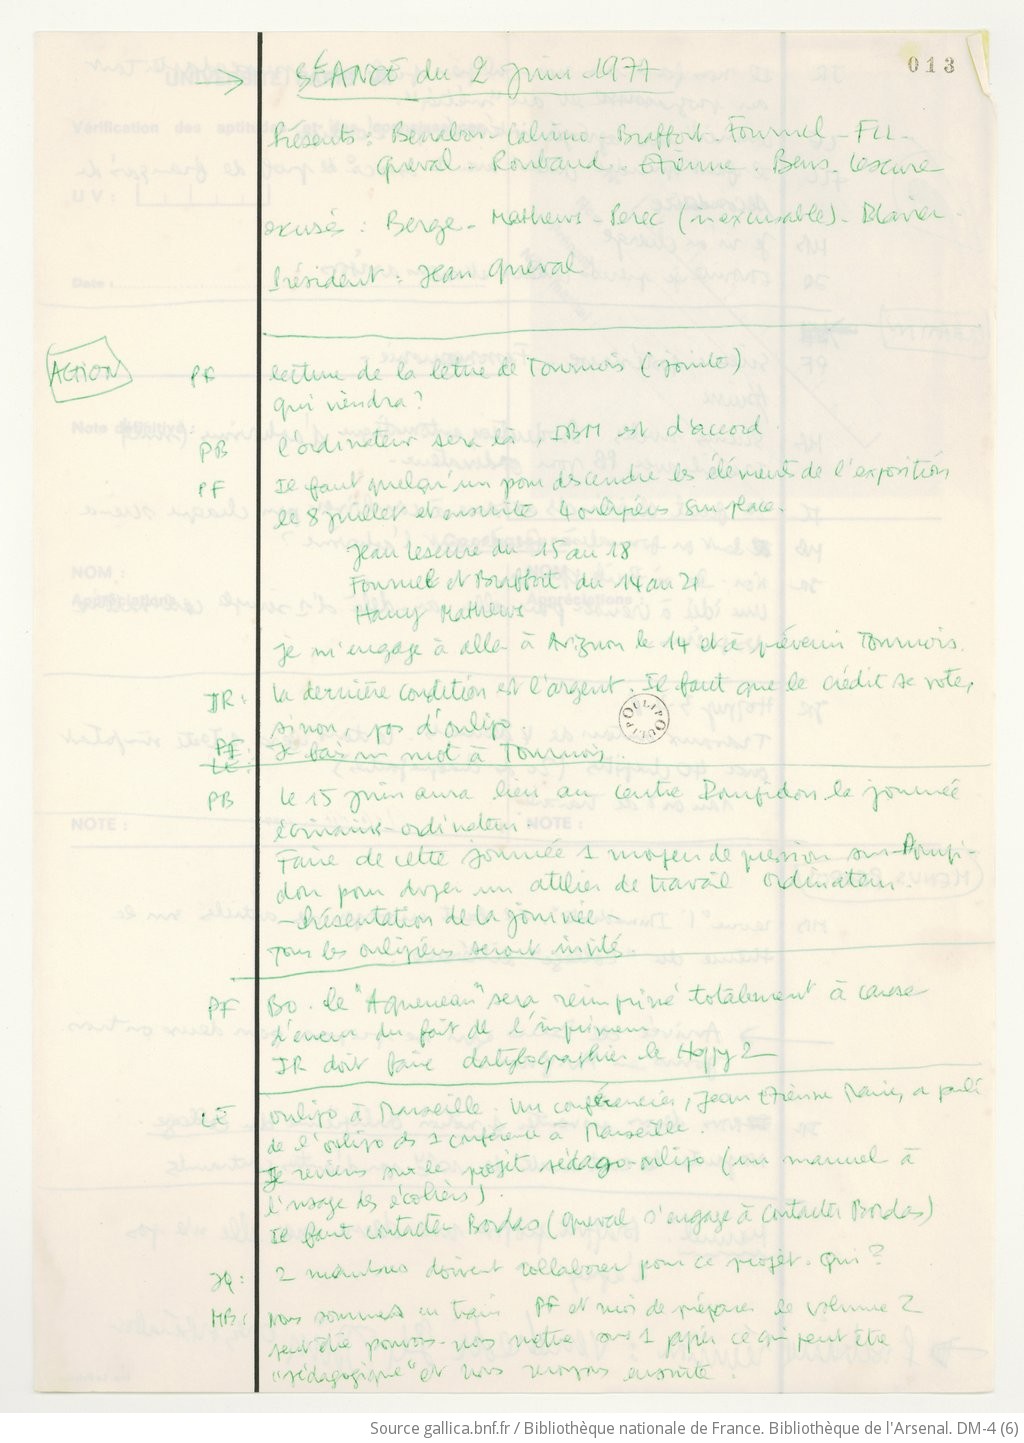 013
→ SÉANCE du 2 juin 1977
Présents : Benabou - Calvino - Braffort - Fournel - FLL -
Queval - Roubaud - Etienne - Bens - Lescure
excusés : Berge - Mathews - Perec (inexcusable) - Blavier.
Président : Jean Queval
ACTION
PF lecture de la lettre de Tournois (jointe)
qui viendra ?
PB l'ordinateur sera là, IBM est d'accord.
PF Il faut quelqu'un pour descendre les éléments de l'exposition
le 8 juillet et ensuite 4 oulipiens sur place.
Jean Lescure du 15 au 18
Fournel et Braffort du 14 au 21
Harry Mathews
je m'engage à aller à Avignon le 14 et à prévenir Tournois.
JR : la dernière condition est l'argent. Il faut que le crédit se vote,
sinon, pas d'oulipo.
PF : Je fais un mot à Tournois.
OULIPO OULIPO
PB Le 15 juin aura lieu au centre Pompidou la journée
écrivains-ordinateur.
Faire de cette journée 1 moyen de pression sur Pompi-
dou pour doper un atelier de travail ordinateur.
- Présentation de la journée -
Tous les oulipiens seront invités.
PF BO. le "A Queneau" sera réimprimé totalement à cause
d'erreur du fait de l'imprimeur
JR doit faire dactylographier le Hoppy 2
LE oulipo à Marseille. Un conférencier, Jean Etienne Marie, a parlé
de l'oulipo ds 1 conférence à Marseille.
Je reviens sur le projet pédago-oulipo (un manuel à
l'usage des écoliers).
Il faut contacter Bordas (Queval s'engage à contacter Bordas)
JQ : 2 membres doivent collaborer pour ce projet. Qui ?
MB : Nous sommes en train PF et moi de préparer le volume 2
peut être pouvons-nous mettre sur 1 papier ce qui peut être
"pédagogique" et nous verrons ensuite.
Source gallica.bnf.fr / Bibliothèque nationale de France. Bibliothèque de l'Arsenal. DM-4 (6)